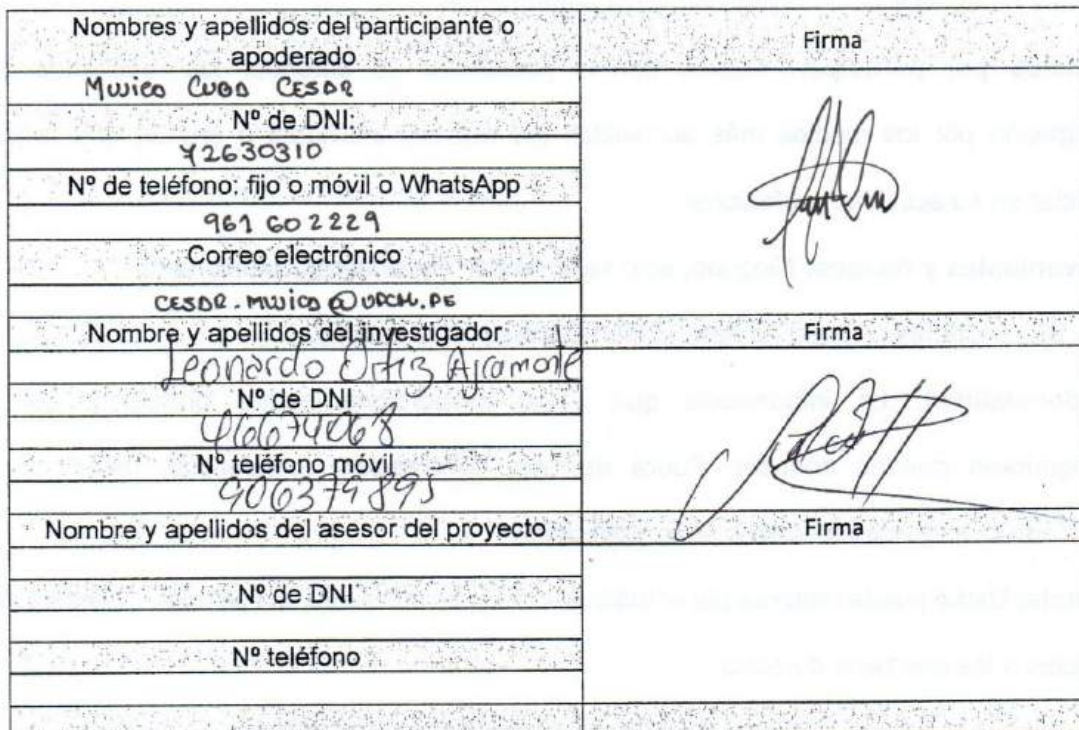 Nombres y apellidos del participante o
apoderado
Firma
Mujica Cuba CESAR
Nº de DNI:
42630310
Nº de teléfono: fijo o móvil o WhatsApp
961 602229
Correo electrónico
CESAR.MUJICA@UPCH.PE
Nombre y apellidos del investigador
Firma
Leonardo Ortiz
Nº de DNI
Nº teléfono móvil
Nombre y apellidos del asesor del proyecto
Firma
Nº de DNI
Nº teléfono